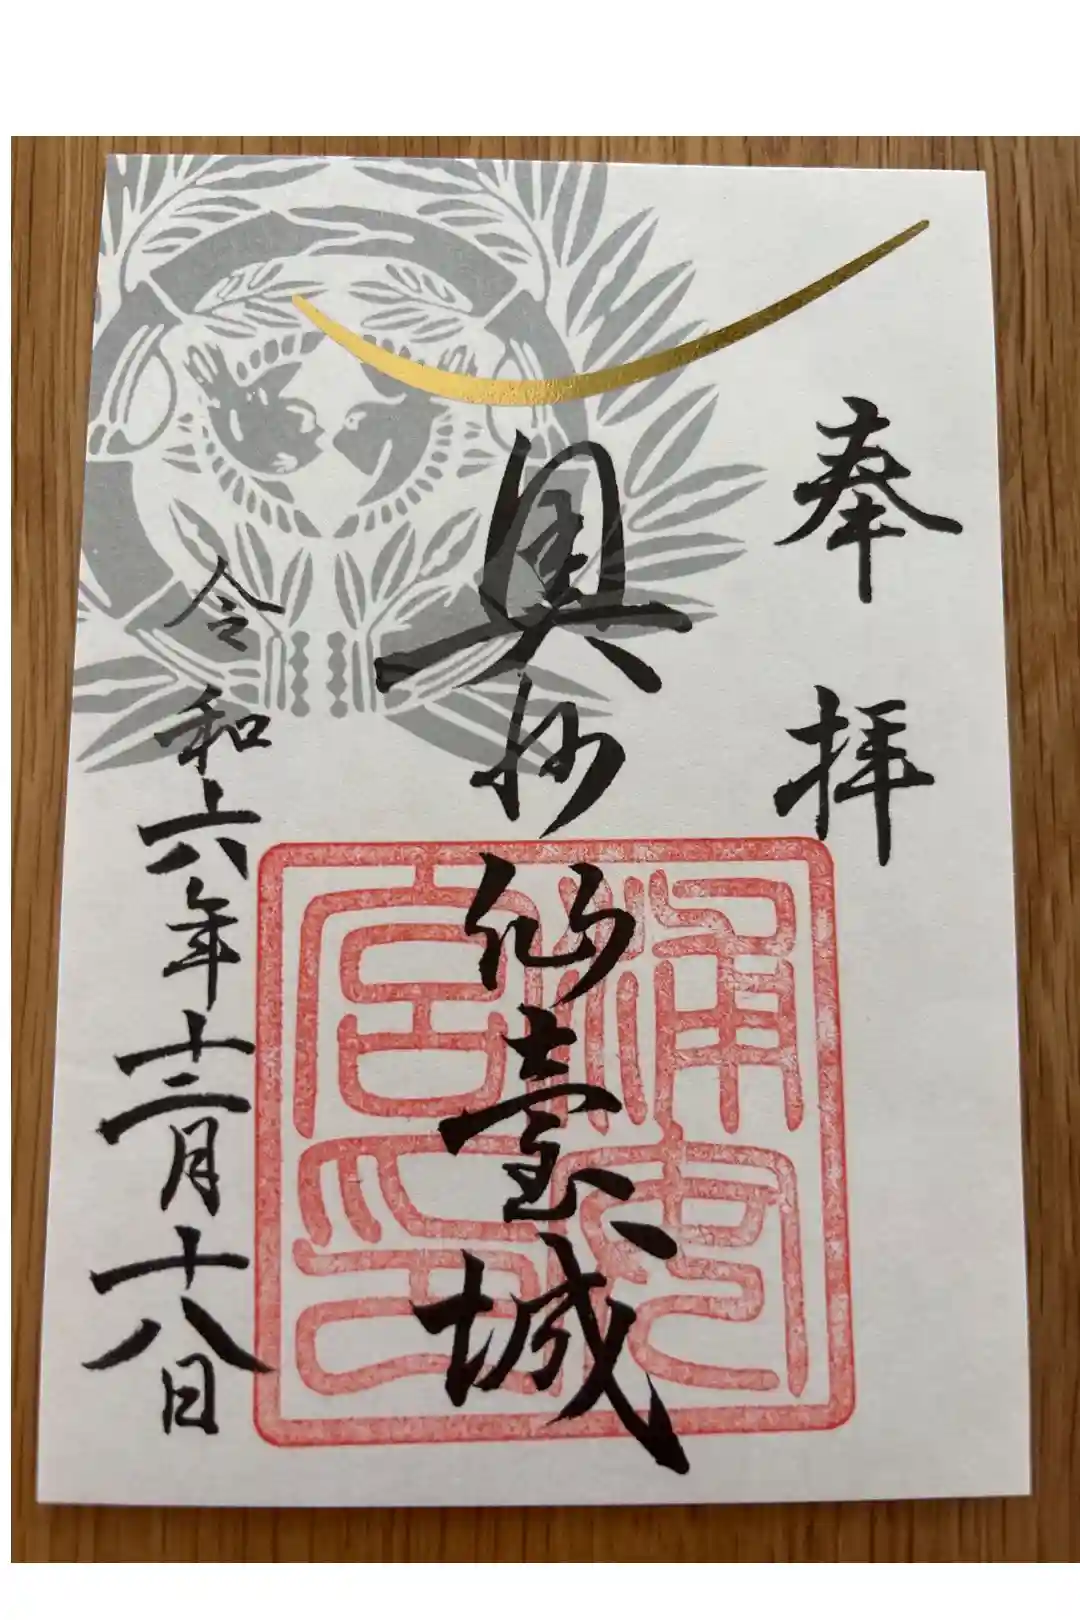 奉拝
奥州仙臺城
浦安宮印
令和六年十二月十八日